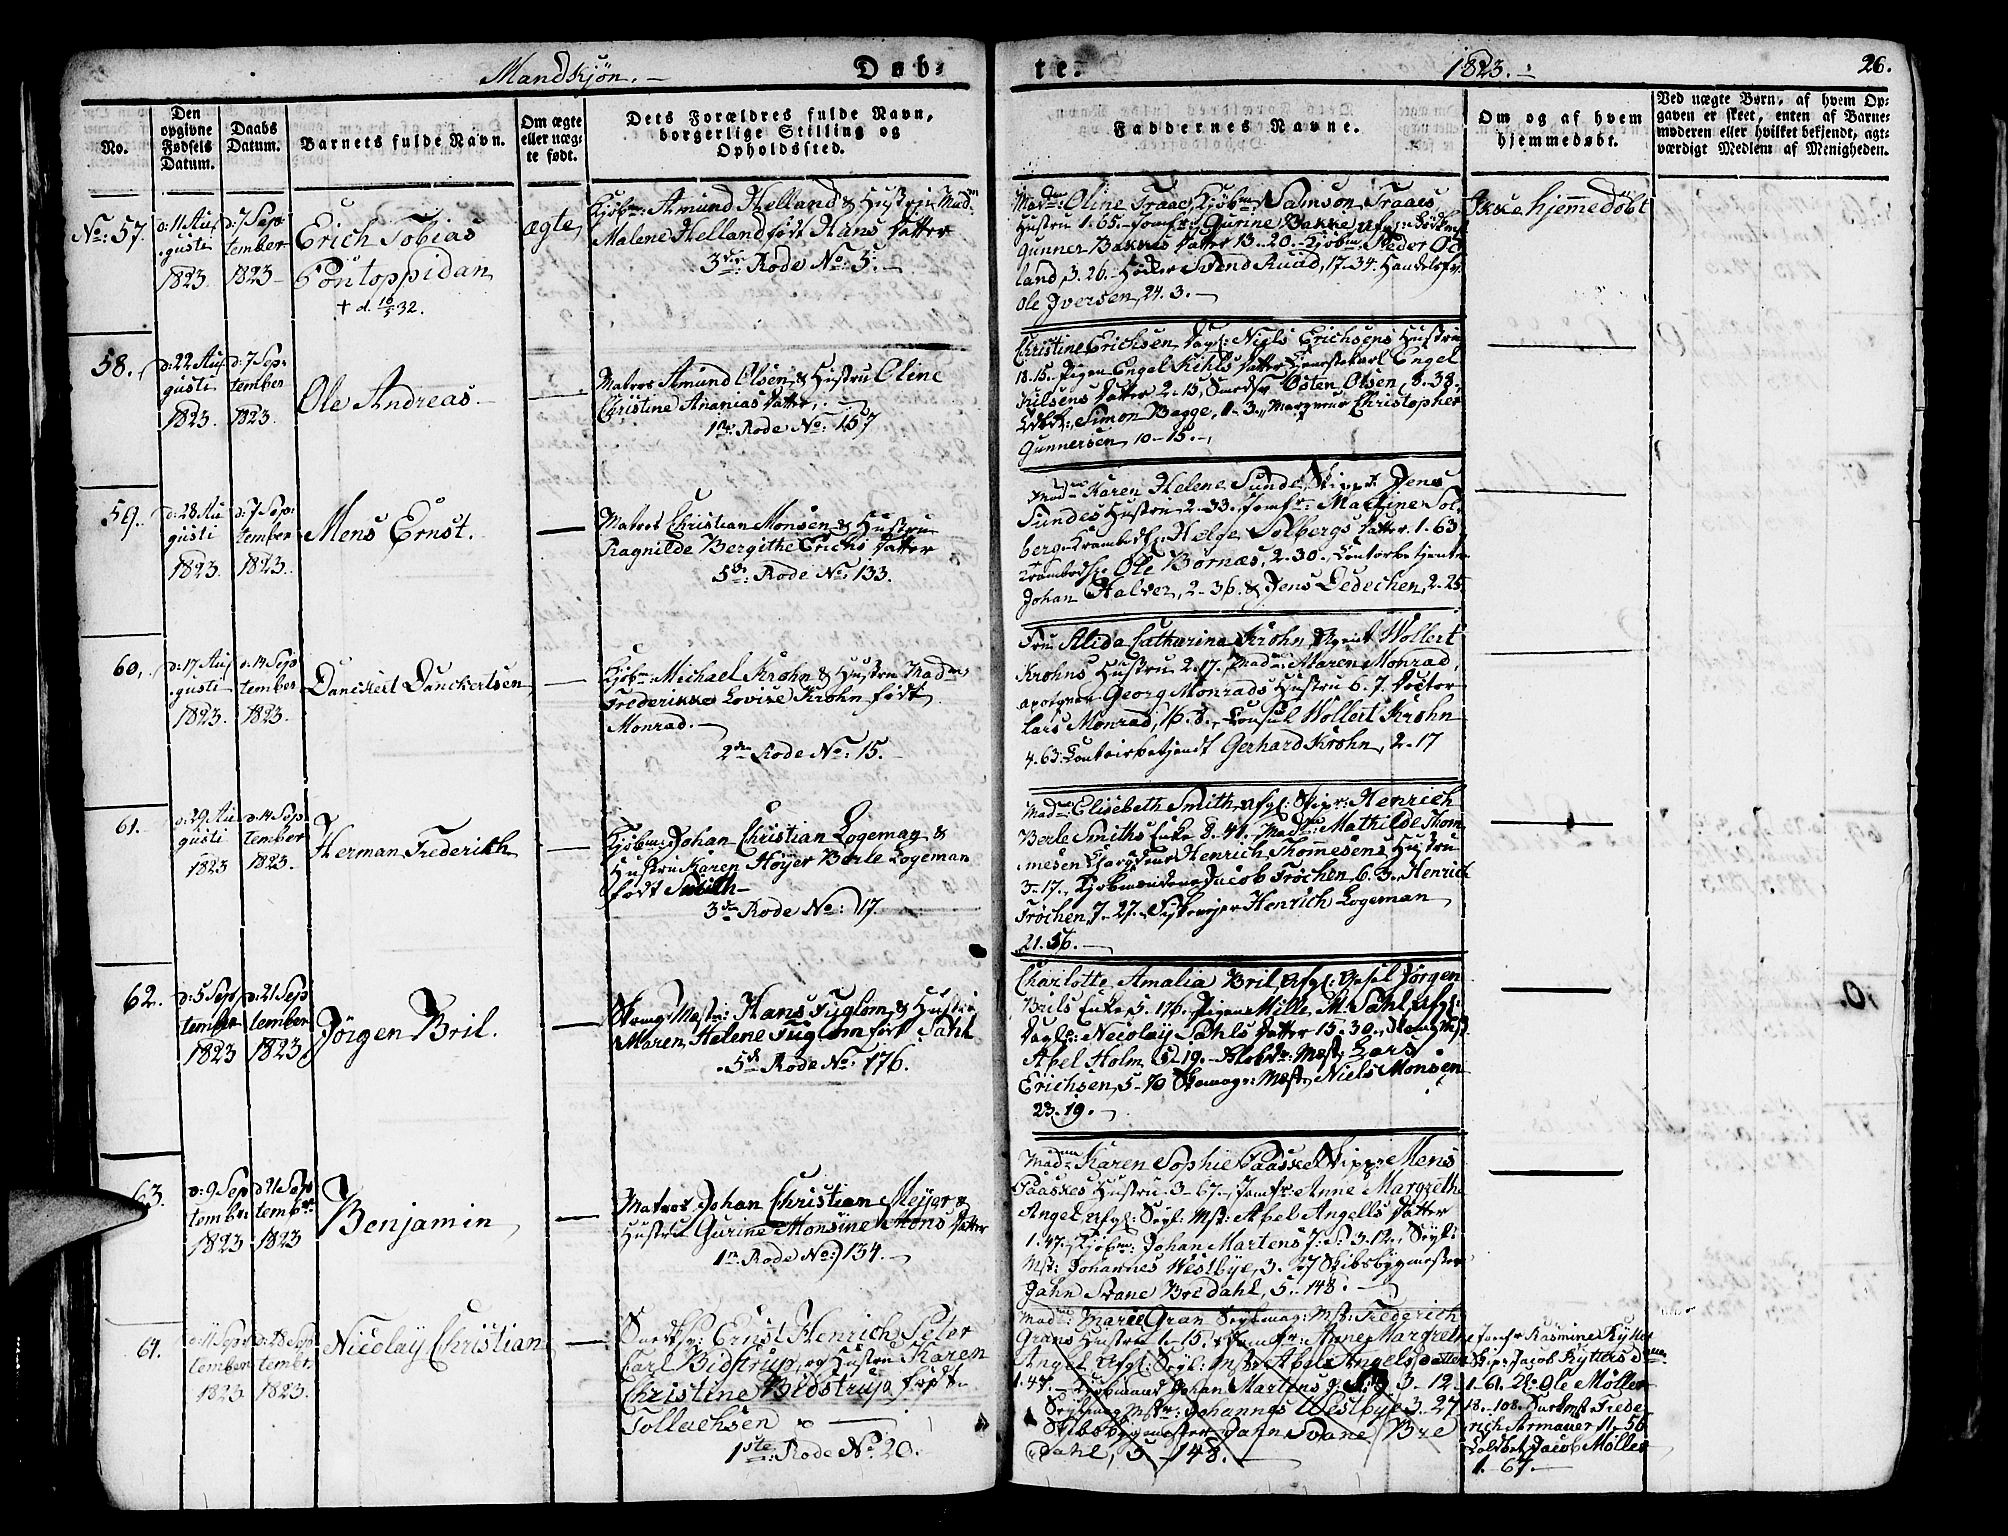 Mandkjön.
Døb-
te.
1823.
26.
No.
Den opgivne Fødsels Datum.
Daabs Datum.
Barnets fulde Navn.
Om ægte eller uægte født.
Dets Forældres fulde Navn, borgerlige Stilling og Opholdssted.
Faddernes Navne.
Om og af hvem hjemmedøbt.
Ved uægte Børn, af hvem Opgaven er skeet, enten af Barnemoderen eller hvilket bekjendt, agtværdigt Medlem af Menigheden.
No: 57.
d: 11 Augusti 1823.
d: 7 September 1823
Erich Tobias
Pontoppidan
† d. 16/5 32.
ægte
Kjøbm: Amund Helland & Hustru Madm
Malene Helland født Hans Datter
3die Rode No: 5.
Oline Traae, Kjøbm Samson Traaes
Hustru 1.65. Jomfru Gurine Bakke
Gunner Bakkes Datter 13. 20. Kjøbm Peder
land, 3. 26. Svend Ruud, 17-34.
Ole Iversen, 24. 3.
Ikke hjemmedøbt
58.
d: 22 Augusti 1823.
d: 7 September 1823.
Ole Andreas.
Matros Amund Olsen, & Hustru Oline
Christine Ananias Datter,
1ste Rode No: 157
Christine Erichsen, Niels Erichsens Hustru
18.15. Pigen Engel Kihls Datter Engel
Nilsens Datter 2-15, Osten Olsen, 8.38.
Simon Bagge, 1-3. Christopher
Gunnersen, 10-15.
59.
d: 28 Augusti 1823.
d: 7 September 1823.
Mens Ernst.
Matros Christian Monsen & Hustru
Ragnilde Bergithe Erichs Datter
5te Rode No: 133.
Karen Helene Sunde, Skipp: Jens
Sundes Hustru 2-33. Jomfr: Martine Sol
berg Helge Solbergs Datter 1.63
Ole Bornæs, 2-30. Contorbetjente
Johan Halver, 2-36. & Jens Ledechen, 2-25
60.
d: 17 Augusti 1823.
d: 14 September 1823.
Danckert Danckertsen
Kjøbm Michael Krohn & Hustru Madm
Frederikke Lovise Krohn født
Monrad.
2den Rode No: 15.
Fru Alida Catharina Krohn Agent Wollert
Krohns Hustru 2.17. Maren Monrad,
Georg Monrads Hustru 6.7. Doctor
Lars Monrad, Consul Wollert Krohn
4.63. Contoirbetjendt Gerhard Krohn, 2-17
61.
d: 29 Augusti 1823
d: 14 September 1823.
Herman Frederikh
Kjøbm: Johan Christian Logeman &
Hustru Karen Höyer Berle Logeman
født Smith
3die Rode No: 17.
Elisebeth Smith, Afgl: Skipr: Henrich
Berle Smiths Enke 8.41. Mathilde Thom
mesen Henrich Thommesens Hustru
3-17. Kjøbmændene Jacob Fröchen, 6.3. Henrich
Fröchen, 7-27. Henrich Logeman
21.56.
62.
d: 5 September 1823
d: 21 September 1823
Jörgen Bril.
Mestr: Hans Fuglom, & Hustru
Maren Helene Fuglom født Sahl
5te Rode No: 176.
Charlotte Amalia Bril, Afgl: Jörgen
Brils Enke 5.176. Pigen Mille M. Sahl, Afgl:
Nicolay Sahls Datter 15-30.
Abel Holm, 5-19. Lars
Erichsen, 5-70 Niels Monsen
23.19.
63.
d: 9 September 1823
d: 21 September 1823
Benjamin
Matros Johan Christian Meyer &
Hustru Gurine Monsine Mons Datter
1ste Rode No: 134.
Karen Sophie Paaske Skipp: Mens
Paaskes Hustru. 3-67. Jomfr: Anne Margrethe
Angel, Afgl: Seyl: Mst: Abel Angells Datter
1.47. Kjøbm: Johan Martens 3.12. Seyl:
Mst: Johannes Westbye, 3.27 Skibsbygmester
Jahn Svane Bredahl, 5-148.
64.
d: 11 September 1823
d: 28 September 1823.
Nicolay Christian
Ernst Henrich Peter
Carl Bidstrup, og Hustru Karen
Christine Bidstrup født
Tollachsen
1ste: Rode No 20.
Marie Gran Seylmag: Mst: Frederich
Grans Hustru 1-15. Jomfr: Anne Margrethe
Angel Afgl: Seyl: Mst: Abel Angels Datter
1.47. Kjøbmand Johan Martens 3-12.
Johannes Westbye 3.27
Skibsbygmester Jahn Svane Bre
dahl, 5-148.
Jomfr Rasmine Kytter
Skipr Jacob Kytters
1-61. Ole Møller
18-108. Frede-
rich Armauer 11-56
Jacob Møller
1-67.